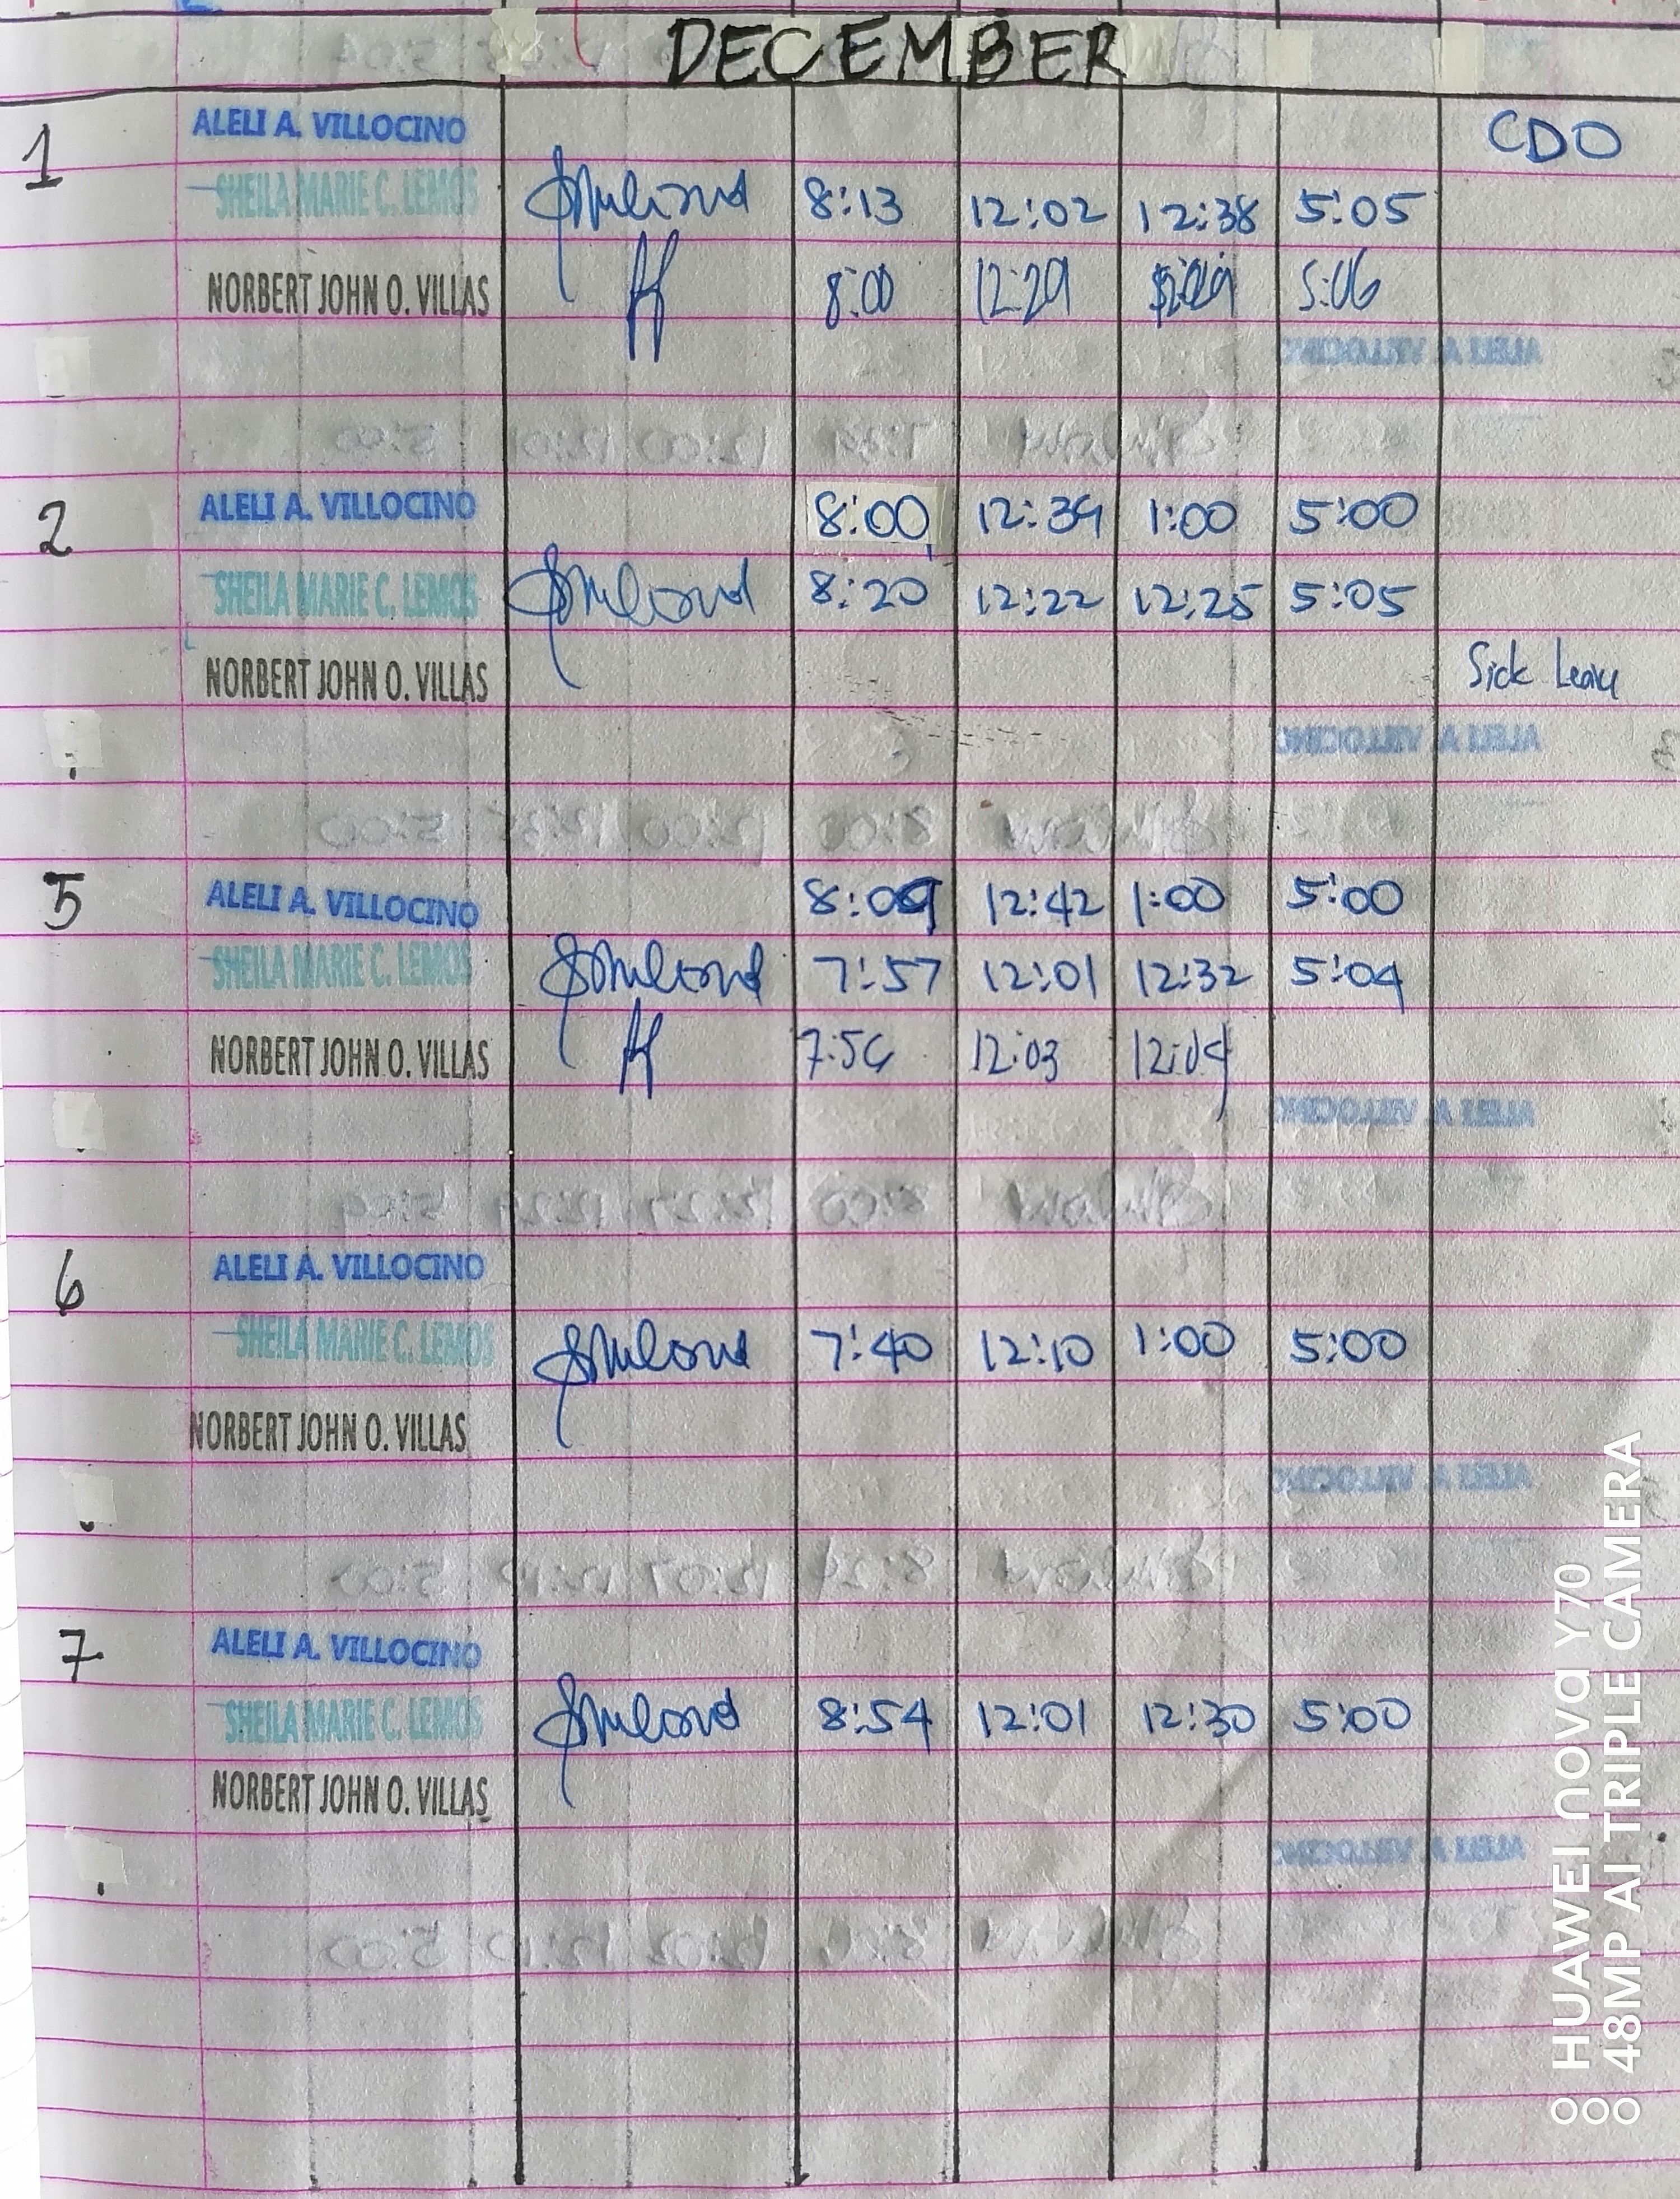 DECEMBER
1 ALELI A. VILLOCINO CDO
SHEILA MARIE C. LEMOS 8:13 12:02 12:38 5:05
NORBERT JOHN O. VILLAS 8:00 12:29 5:06
2 ALELI A. VILLOCINO 8:00 12:39 1:00 5:00
SHEILA MARIE C. LEMOS 8:20 12:22 12:25 5:05
NORBERT JOHN O. VILLAS Sick Leave
5 ALELI A. VILLOCINO 8:09 12:42 1:00 5:00
SHEILA MARIE C. LEMOS 7:57 12:01 12:32 5:04
NORBERT JOHN O. VILLAS 12:03 12:04
6 ALELI A. VILLOCINO
SHEILA MARIE C. LEMOS 7:40 12:10 1:00 5:00
NORBERT JOHN O. VILLAS
7 ALELI A. VILLOCINO
SHEILA MARIE C. LEMOS 8:54 12:01 12:30 5:00
NORBERT JOHN O. VILLAS
HUAWEI nova Y70
48MP AI TRIPLE CAMERA